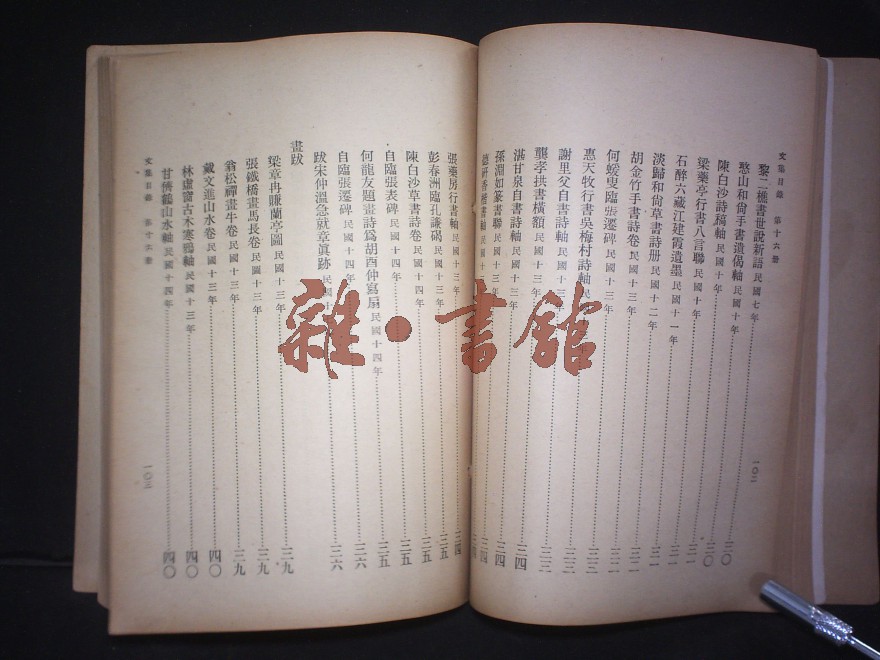 文集目錄 第十六册
黎二樵書世說新語 民國七年
憨山和尙手書遺偈軸 民國十年
陳白沙詩稿軸 民國十年 三〇
梁藥亭行書八言聯 民國十年 三〇
石醉六藏江建霞遺墨 民國十一年 三一
淡歸和尙草書詩册 民國十二年 三一
胡金竹手書詩卷 民國十三年 三二
何蝯叟臨張遷碑 民國十三年 三二
惠天牧行書吳梅村詩軸 三三
謝里父自書詩軸 民國十三 三三
龔孝拱書橫額 民國十三年 三三
湛甘泉自書詩軸 民國十三年 三四
孫淵如篆書聯 民國十三年 三四
書軸 民國十 三四
一〇二
張藥房行書軸 民國十三年 三四
彭春洲臨孔謙碣 民國十三年 三五
陳白沙草書詩卷 民國十四年 三五
自臨張表碑 民國十四年 三五
何龍友題畫詩爲胡酉仲寫扇 民國十四年 三五
自臨張遷碑 民國十四年 三六
跋宋仲溫急就章眞跡 民國十 三六
畫跋
梁章冉賺蘭亭圖 民國十三年 三九
張鐵橋畫馬長卷 民國十三年 三九
翁松禪畫牛卷 民國十三年 三九
戴文進山水卷 民國十三年 四〇
林虛窗古木寒鴉軸 民國十三年 四〇
甘儕鶴山水軸 民國十四年 四〇
文集目錄 第十六册
一〇三
雜·書館